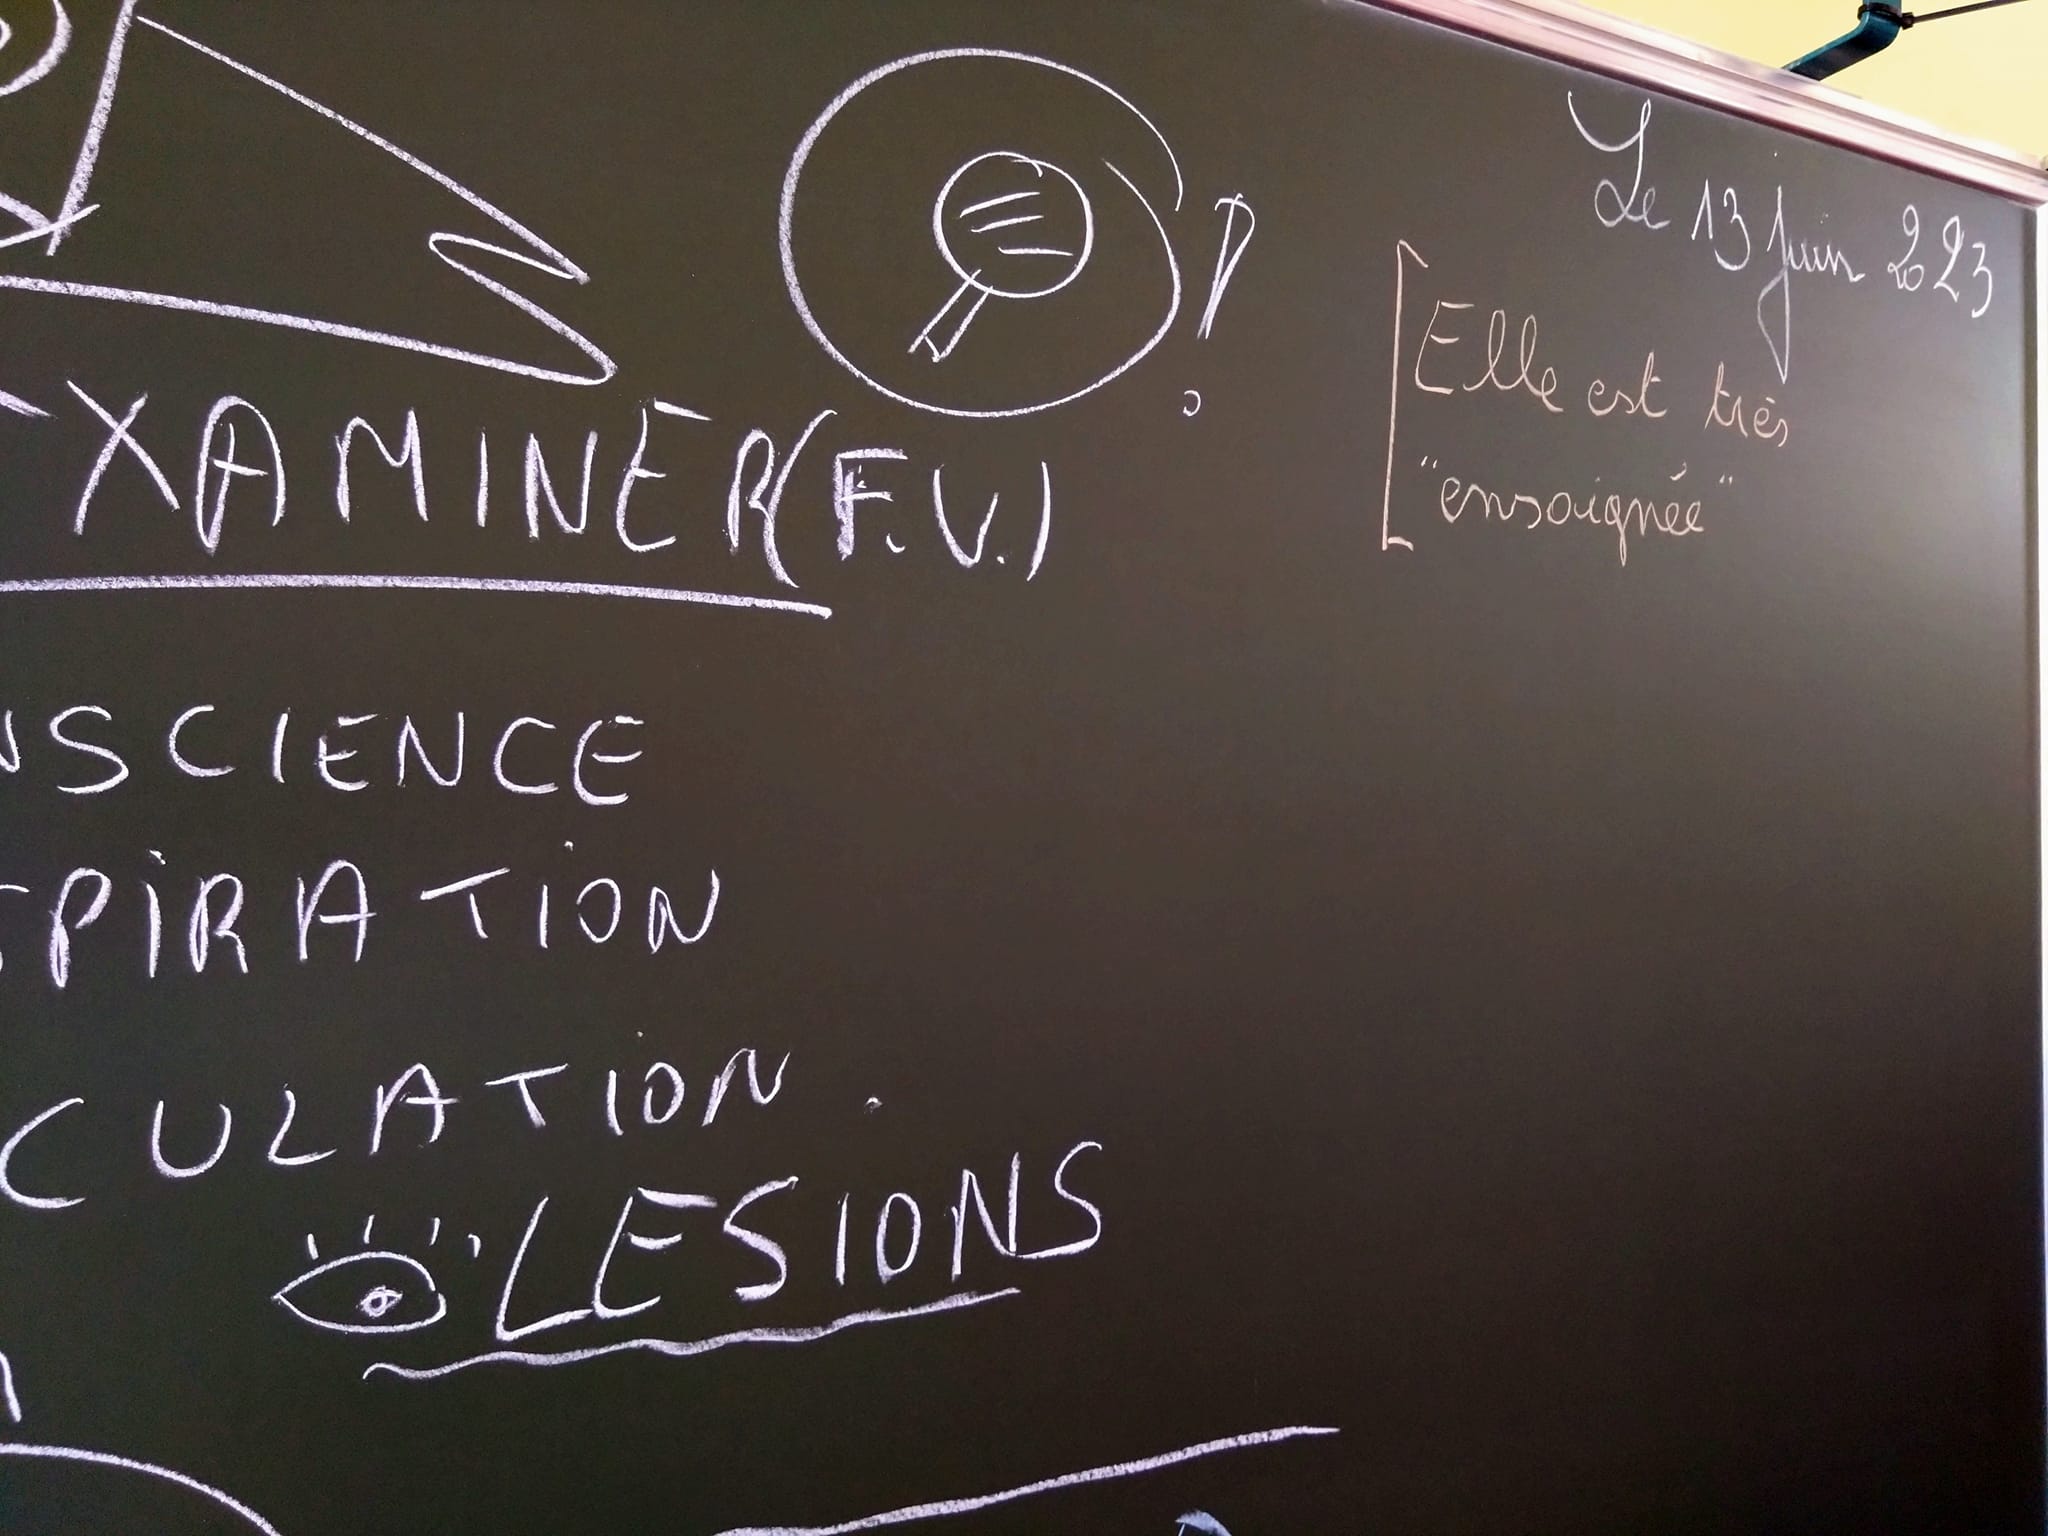 Le 13 juin 2023
Elle est très
"ensoignée"
XAMINER (F.V.)
NSCIENCE
SPIRATION
CULATION.
LESIONS